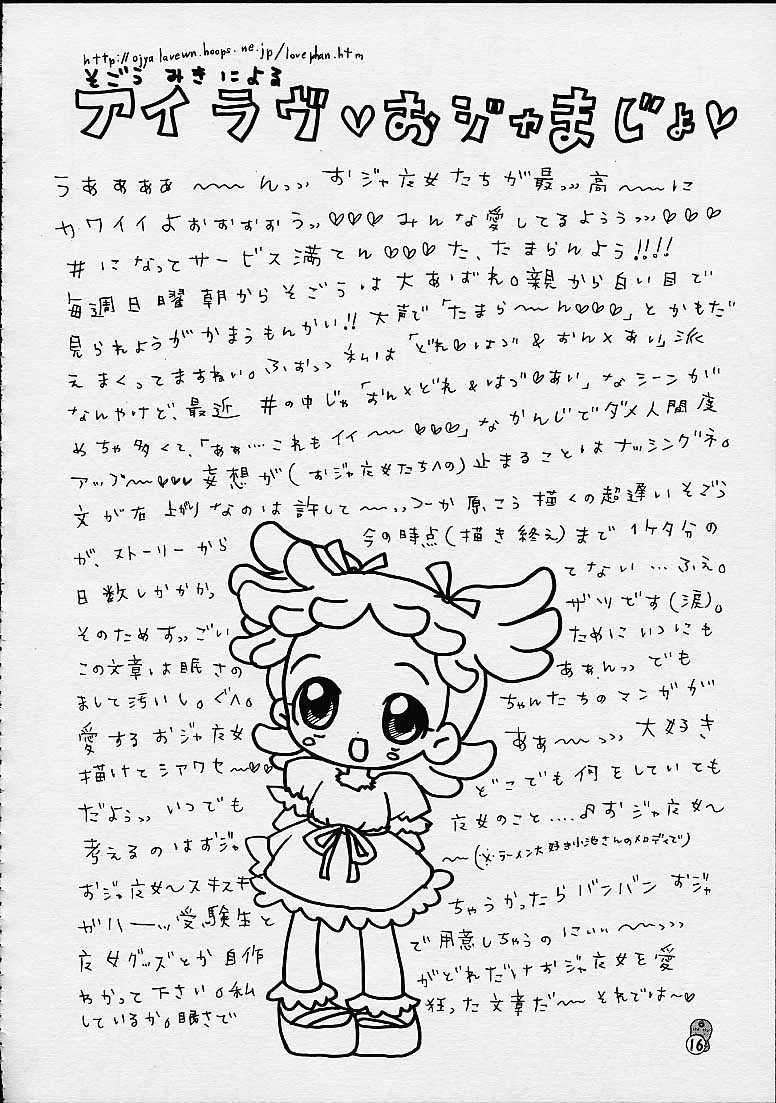 http://ojya lavewn.hoops.ne.jp/lovephan.htm
そごう みきによる
アイラヴ♡おジャまじょ♡
うああああ〜〜んっっ おジャ魔女たちが最っっ高〜〜に
カワイイよおおおおうっっ♡♡♡みんな愛してるようぅっっ♡♡♡
#になってサービス満てん♡♡♡た、たまらんよう!!!!
毎週日曜朝からそごうは大あばれ。親から白い目で
見られようがかまうもんかい!!大声で「たまら〜〜ん♡♡♡」とかもだ
えまくってますねい。ふおっっ 私は「どれ♡はづ&おん×あい」派
なんやけど、最近 #の中じゃ「おん×どれ&はづ♡あい」なシーンが
めちゃ多くて、「あぁ…これもイイ〜〜♡♡♡」なかんじでダメ人間度
アップ〜〜♡♡♡妄想が(おジャ魔女たちへの)止まることはナッシングネ。
文が右上がりなのは許して〜〜っっつーか原こう描くの超遅いそごう
が、ストーリーから 今の時点(描き終え)まで1ケタ分の
日数しかかかっ てない…ふえ。
そのためすっごい ザツです(涙)。
この文章は眠さの ためにいつにも
まして汚いし。ぐへ。 あぁんっっでも
愛するおジャ魔女 ちゃんたちのマンガが
描けてシアワセ〜♡♡ ああ〜〜っっ大好き
だようっっいつでも どこでも何をしていても
考えるのはおジャ 魔女のこと……♪おジャ魔女〜
おジャ魔女〜スキスキ 〜〜(※ラーメン大好き小池さんのメロディで)
がハーーッ受験生と ちゃうかったらバンバンおジャ
魔女グッズとか自作 で用意しちゃうのにぃぃ〜〜っっ
わかって下さい。私 がどれだけおジャ魔女を愛
しているか。眠さで 狂った文章だ〜〜それでは〜♡
16